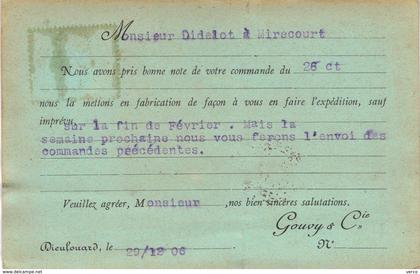 Monsieur Didelot à Mirecourt
Nous avons pris bonne note de votre commande du 26 ct
nous la mettons en fabrication de façon à vous en faire l'expédition, sauf
imprévu, sur la fin de Février. Mais la
semaine prochaine nous vous ferons l'envoi des
commandes précédentes.
Veuillez agréer, Monsieur, nos bien sincères salutations.
Gouvy & Cie
Dieulouard, le 29/12 06 No